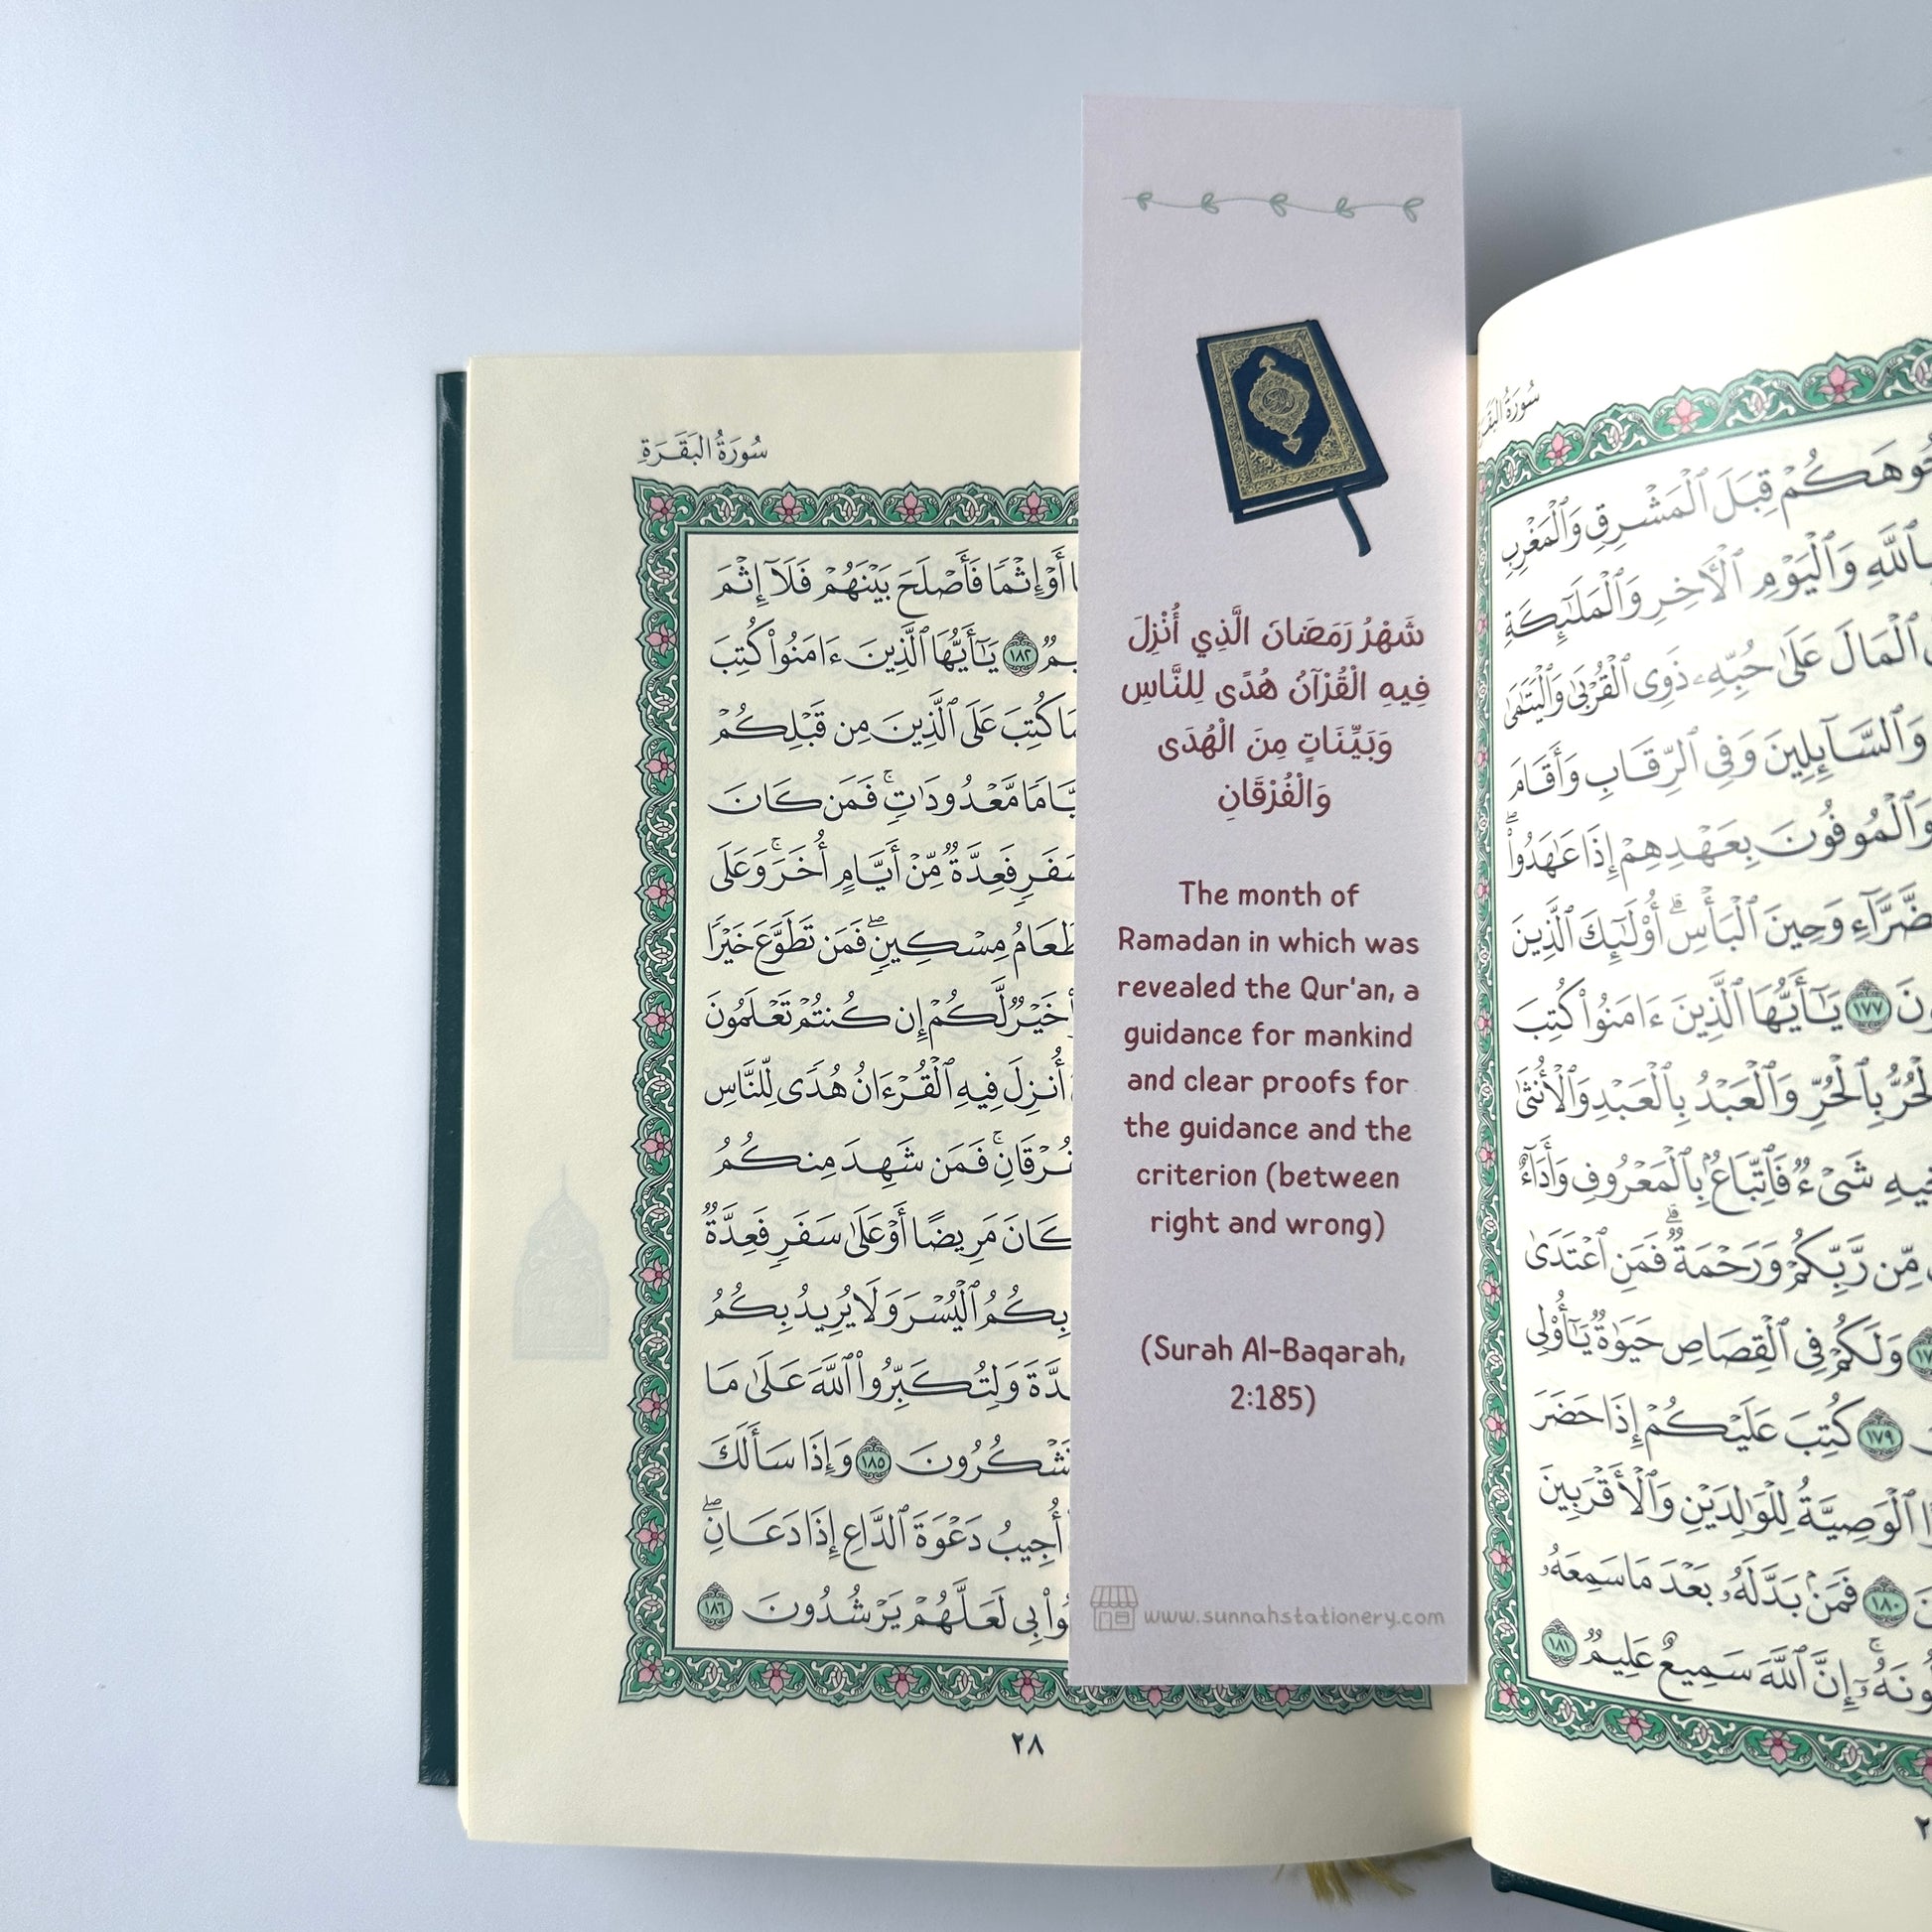 سُورَةُ البَقَرَةِ
أَوْ إِثْمًا فَأَصْلَحَ بَيْنَهُمْ فَلَآ إِثْمَ
١٨٢ يَـٰٓأَيُّهَا ٱلَّذِينَ ءَامَنُوا۟ كُتِبَ
كُتِبَ عَلَى ٱلَّذِينَ مِن قَبْلِكُمْ
مَّعْدُودَٰتٍ ۚ فَمَن كَانَ
سَفَرٍ فَعِدَّةٌ مِّنْ أَيَّامٍ أُخَرَ ۚ وَعَلَى
طَعَامُ مِسْكِينٍ ۖ فَمَن تَطَوَّعَ خَيْرًا
خَيْرٌ لَّكُمْ إِن كُنتُمْ تَعْلَمُونَ
أُنزِلَ فِيهِ ٱلْقُرْءَانُ هُدًى لِّلنَّاسِ
فَمَن شَهِدَ مِنكُمُ
كَانَ مَرِيضًا أَوْ عَلَىٰ سَفَرٍ فَعِدَّةٌ
بِكُمُ ٱلْيُسْرَ وَلَا يُرِيدُ بِكُمُ
وَلِتُكَبِّرُوا۟ ٱللَّهَ عَلَىٰ مَا
١٨٥ وَإِذَا سَأَلَكَ
أُجِيبُ دَعْوَةَ ٱلدَّاعِ إِذَا دَعَانِ ۖ
بِى لَعَلَّهُمْ يَرْشُدُونَ ١٨٦
٢٨
شَهْرُ رَمَضَانَ الَّذِي أُنْزِلَ
فِيهِ الْقُرْآنُ هُدًى لِلنَّاسِ
وَبَيِّنَاتٍ مِنَ الْهُدَى
وَالْفُرْقَانِ
The month of
Ramadan in which was
revealed the Qur'an, a
guidance for mankind
and clear proofs for
the guidance and the
criterion (between
right and wrong)
(Surah Al-Baqarah,
2:185)
www.sunnahstationery.com
قِبَلَ ٱلْمَشْرِقِ وَٱلْمَغْرِبِ
وَٱلْيَوْمِ ٱلْـَٔاخِرِ وَٱلْمَلَـٰٓئِكَةِ
ٱلْمَالَ عَلَىٰ حُبِّهِۦ ذَوِى ٱلْقُرْبَىٰ وَٱلْيَتَـٰمَىٰ
وَٱلسَّآئِلِينَ وَفِى ٱلرِّقَابِ وَأَقَامَ
وَٱلْمُوفُونَ بِعَهْدِهِمْ إِذَا عَـٰهَدُوا۟ ۖ
وَحِينَ ٱلْبَأْسِ ۗ أُو۟لَـٰٓئِكَ ٱلَّذِينَ
١٧٧ يَـٰٓأَيُّهَا ٱلَّذِينَ ءَامَنُوا۟ كُتِبَ
بِٱلْحُرِّ وَٱلْعَبْدُ بِٱلْعَبْدِ وَٱلْأُنثَىٰ
شَىْءٌ فَٱتِّبَاعٌۢ بِٱلْمَعْرُوفِ وَأَدَآءٌ
مِّن رَّبِّكُمْ وَرَحْمَةٌ ۗ فَمَنِ ٱعْتَدَىٰ
وَلَكُمْ فِى ٱلْقِصَاصِ حَيَوٰةٌ يَـٰٓأُو۟لِى
١٧٩ كُتِبَ عَلَيْكُمْ إِذَا حَضَرَ
ٱلْوَصِيَّةُ لِلْوَٰلِدَيْنِ وَٱلْأَقْرَبِينَ
١٨٠ فَمَنۢ بَدَّلَهُۥ بَعْدَ مَا سَمِعَهُۥ
إِنَّ ٱللَّهَ سَمِيعٌ عَلِيمٌ ١٨١